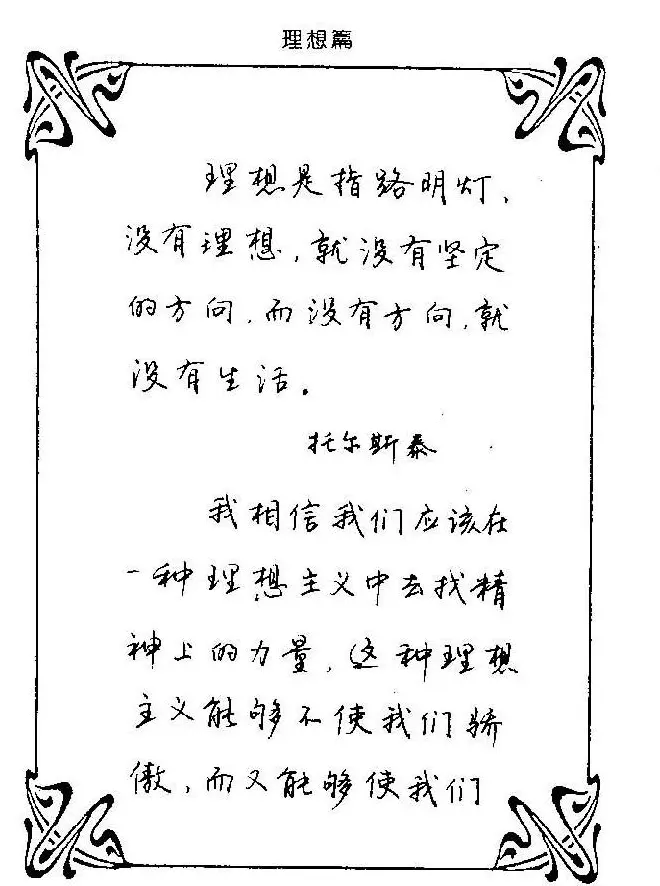 理想篇
理想是指路明灯、
没有理想,就没有坚定
的方向,而没有方向,就
没有生活。
托尔斯泰
我相信我们应该在
一种理想主义中去找精
神上的力量,这种理想
主义能够不使我们骄
傲,而又能够使我们